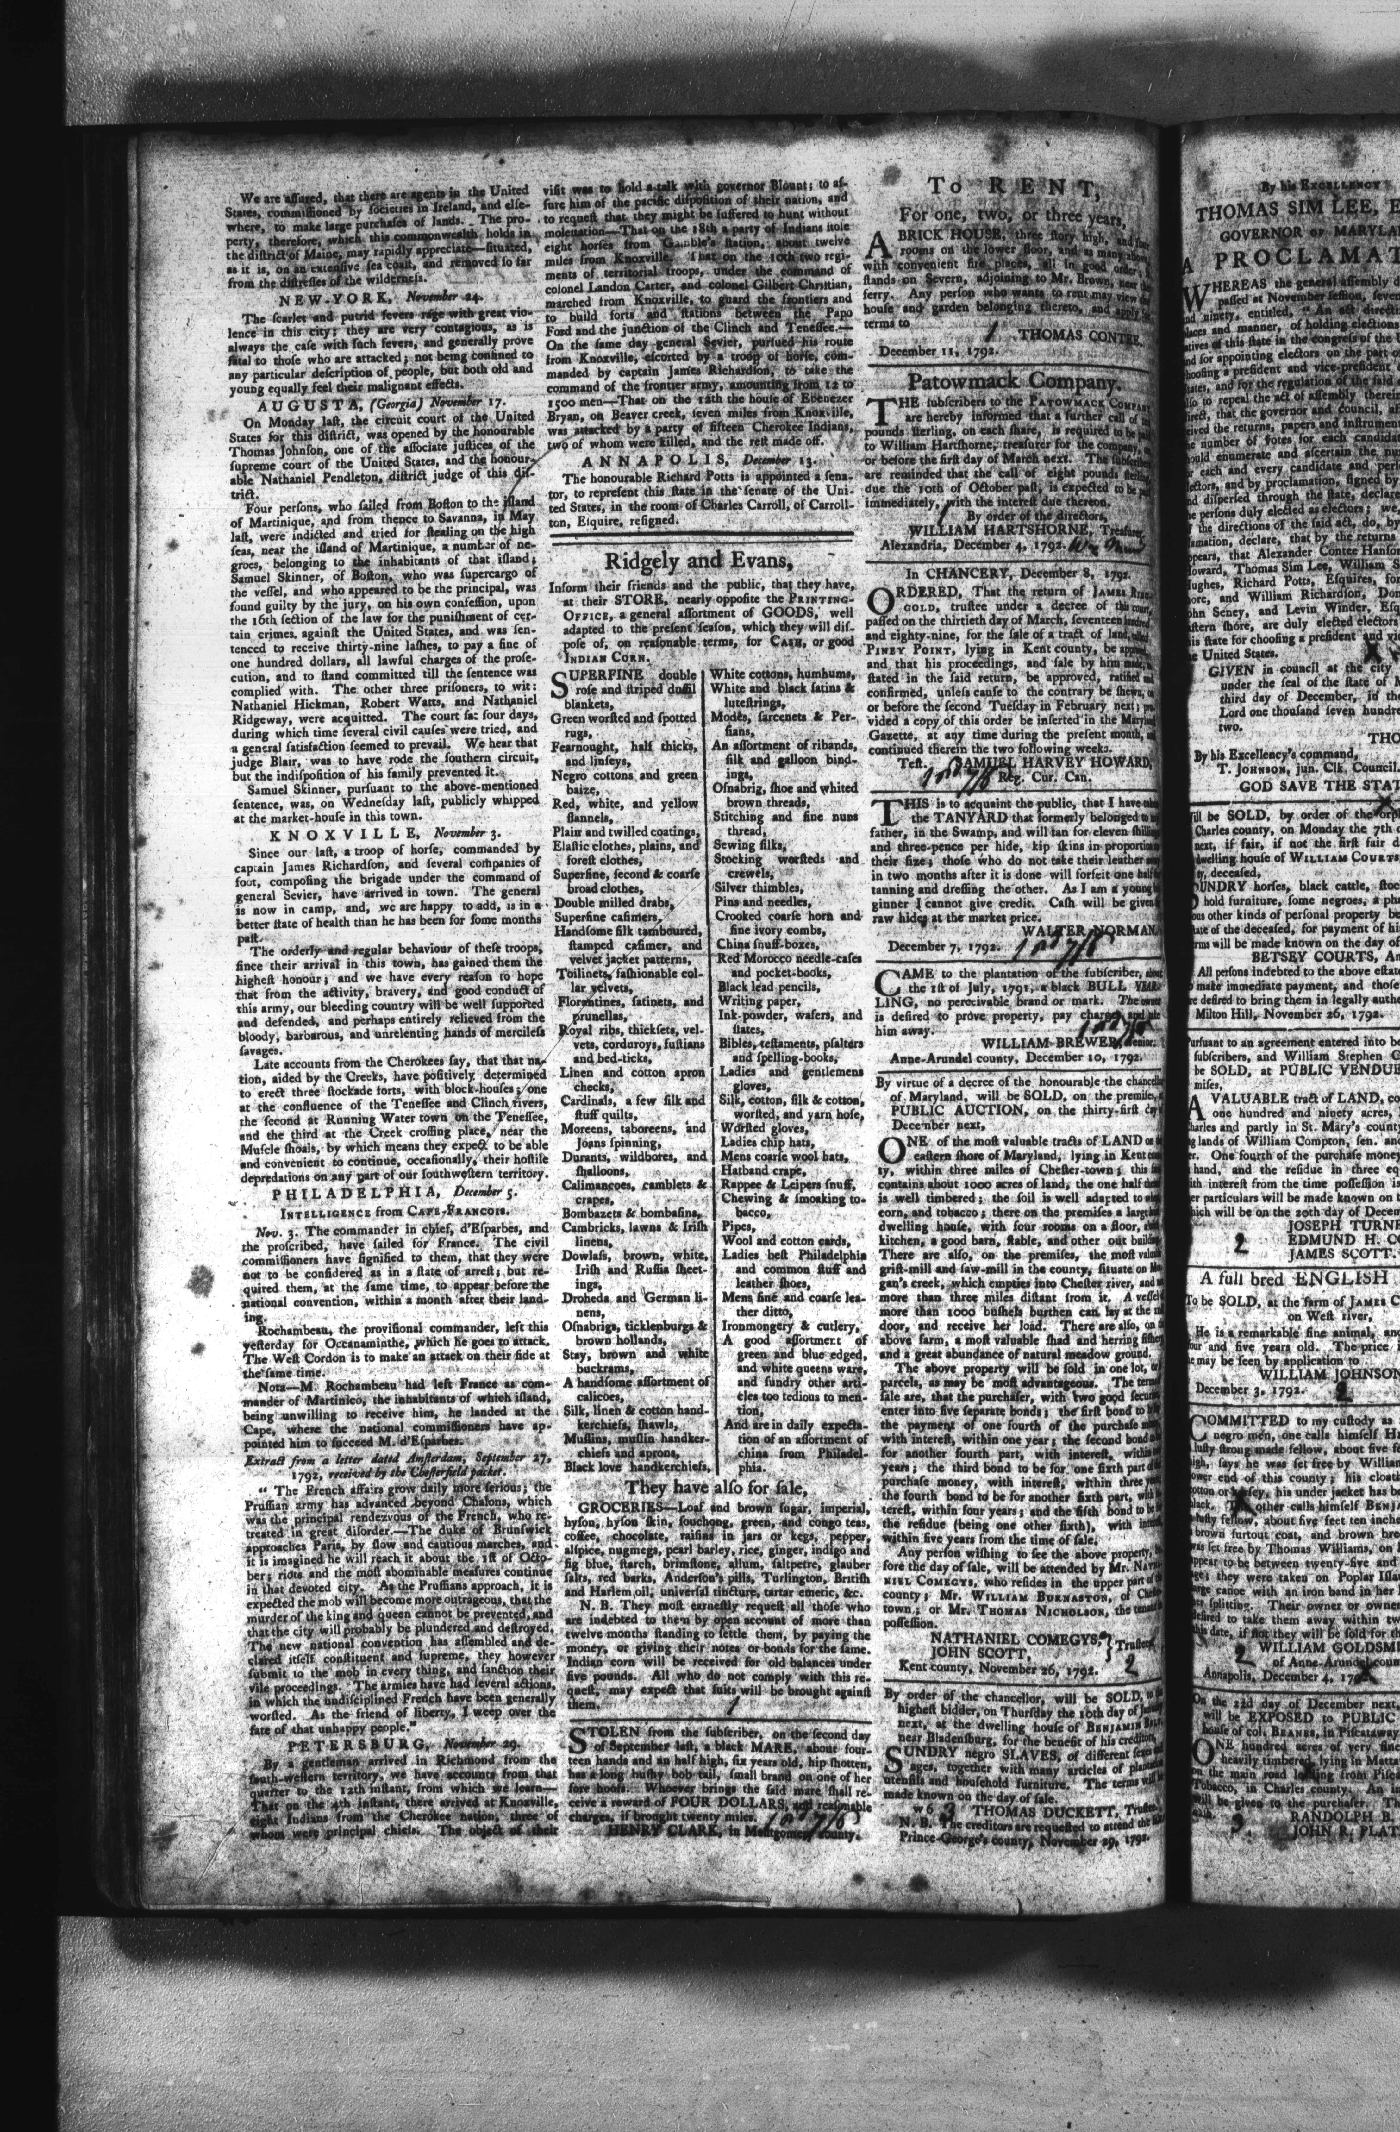 We are assured, that there are agents in the United
States, commissioned by societies in Ireland, and else-
where, to make large purchases of lands. The pro-
perty, therefore, which this commonwealth holds in
the district of Maine, may rapidly appreciate—situated,
as it is, on an extensive sea coast, and removed so far
from the distresses of the wilderness.
NEW-YORK, November 24.
The scarlet and putrid fevers rage with great vio-
lence in this city; they are very contagious, as is
always the case with such fevers, and generally prove
fatal to those who are attacked; not being confined to
any particular description of people, but both old and
young equally feel their malignant effects.
AUGUSTA, (Georgia) November 17.
On Monday last, the circuit court of the United
States for this district, was opened by the honourable
Thomas Johnson, one of the associate justices of the
supreme court of the United States, and the honour-
able Nathaniel Pendleton, district judge of this dis-
trict.
Four persons, who sailed from Boston to the island
of Martinique, and from thence to Savanna, in May
last, were indicted and tried for stealing on the high
seas, near the island of Martinique, a number of ne-
groes, belonging to the inhabitants of that island;
Samuel Skinner, of Boston, who was supercargo of
the vessel, and who appeared to be the principal, was
found guilty by the jury, on his own confession, upon
the 16th section of the law for the punishment of cer-
tain crimes, against the United States, and was sen-
tenced to receive thirty-nine lashes, to pay a fine of
one hundred dollars, all lawful charges of the prose-
cution, and to stand committed till the sentence was
complied with. The other three prisoners, to wit:
Nathaniel Hickman, Robert Watts, and Nathaniel
Ridgeway, were acquitted. The court sat four days,
during which time several civil causes were tried, and
a general satisfaction seemed to prevail. We hear that
judge Blair, was to have rode the southern circuit,
but the indisposition of his family prevented it.
Samuel Skinner, pursuant to the above-mentioned
sentence, was, on Wednesday last, publicly whipped
at the market-house in this town.
KNOXVILLE, November 3.
Since our last, a troop of horse, commanded by
captain James Richardson, and several companies of
foot, composing the brigade under the command of
general Sevier, have arrived in town. The general
is now in camp, and, we are happy to add, is in a
better state of health than he has been for some months
past.
The orderly and regular behaviour of these troops,
since their arrival in this town, has gained them the
highest honour; and we have every reason to hope
that from the activity, bravery, and good conduct of
this army, our bleeding country will be well supported
and defended, and perhaps entirely relieved from the
bloody, barbarous, and unrelenting hands of merciless
savages.
Late accounts from the Cherokees say, that that na-
tion, aided by the Creeks, have positively determined
to erect three stockade forts, with block-houses; one
at the confluence of the Tenessee and Clinch rivers,
the second at Running Water town on the Tenessee,
and the third at the Creek crossing place, near the
Muscle shoals, by which means they expect to be able
and convenient to continue, occasionally, their hostile
depredations on any part of our southwestern territory.
PHILADELPHIA, December 5.
INTELLIGENCE from CAPE-FRANCOIS.
Nov. 3. The commander in chief, d'Esparbes, and
the proscribed, have sailed for France. The civil
commissioners have signified to them, that they were
not to be considered as in a state of arrest; but re-
quired them, at the same time, to appear before the
national convention, within a month after their land-
ing.
Rochambeau, the provisional commander, left this
yesterday for Occanaminthe, which he goes to attack.
The West Cordon is to make an attack on their side at
the same time.
Nota—M. Rochambeau had left France as com-
mander of Martinico, the inhabitants of which island,
being unwilling to receive him, he landed at the
Cape, where the national commissioners have ap-
pointed him to succeed M. d'Esparbes.
Extract from a letter dated Amsterdam, September 27,
1792, received by the Chesterfield packet.
" The French affairs grow daily more serious; the
Prussian army has advanced beyond Chalons, which
was the principal rendezvous of the French, who re-
treated in great disorder.—The duke of Brunswick
approaches Paris, by slow and cautious marches, and
it is imagined he will reach it about the 1st of Octo-
ber; riots and the most abominable measures continue
in that devoted city. As the Prussians approach, it is
expected the mob will become more outrageous, that the
murder of the king and queen cannot be prevented, and
that the city will probably be plundered and destroyed.
The new national convention has assembled and de-
clared itself constituent and supreme, they however
submit to the mob in every thing, and sanction their
vile proceedings. The armies have had several actions,
in which the undisciplined French have been generally
worsted. As the friend of liberty, I weep over the
fate of that unhappy people."
PETERSBURG, November 29.
By a gentleman arrived in Richmond from the
south-western territory, we have accounts from that
quarter to the 12th instant, from which we learn—
That on the 4th instant, there arrived at Knoxville,
eight Indians from the Cherokee nation, three of
whom were principal chiefs. The object of their
visit was to hold a talk with governor Blount; to as-
sure him of the pacific disposition of their nation, and
to request that they might be suffered to hunt without
molestation—That on the 18th a party of Indians stole
eight horses from Gamble's station, about twelve
miles from Knoxville. That on the 10th two regi-
ments of territorial troops, under the command of
colonel Landon Carter, and colonel Gilbert Christian,
marched from Knoxville, to guard the frontiers and
to build forts and stations between the Papo
Ford and the junction of the Clinch and Tenessee.—
On the same day general Sevier, pursued his route
from Knoxville, escorted by a troop of horse, com-
manded by captain James Richardson, to take the
command of the frontier army, amounting from 12 to
1500 men—That on the 12th the house of Ebenezer
Bryan, on Beaver creek, seven miles from Knoxville,
was attacked by a party of fifteen Cherokee Indians,
two of whom were killed, and the rest made off.
ANNAPOLIS, December 13.
The honourable Richard Potts is appointed a sena-
tor, to represent this state in the senate of the Uni-
ted States, in the room of Charles Carroll, of Carroll-
ton, Esquire, resigned.
Ridgely and Evans,
Inform their friends and the public, that they have,
at their STORE, nearly opposite the PRINTING-
OFFICE, a general assortment of GOODS, well
adapted to the present season, which they will dis-
pose of, on reasonable terms, for CASH, or good
INDIAN CORN.
SUPERFINE double
rose and striped duffil
blankets,
Green worsted and spotted
rugs,
Fearnought, half thicks,
and linseys,
Negro cottons and green
baize,
Red, white, and yellow
flannels,
Plain and twilled coatings,
Elastic clothes, plains, and
forest clothes,
Superfine, second & coarse
broad clothes,
Double milled drabs,
Superfine casimers,
Handsome silk tamboured,
stamped casimer, and
velvet jacket patterns,
Toilinets, fashionable col-
lar velvets,
Florentines, satinets, and
prunellas,
Royal ribs, thicksets, vel-
vets, corduroys, fustians
and bed-ticks,
Linen and cotton apron
checks,
Cardinals, a few silk and
stuff quilts,
Moreens, taboreens, and
Joans spinning,
Durants, wildbores, and
shalloons,
Calimancoes, camblets &
crapes,
Bombazets & bombasins,
Cambricks, lawns & Irish
linens,
Dowlass, brown, white,
Irish and Russia sheet-
ings,
Droheda and German li-
nens,
Osnabrigs, ticklenburgs &
brown hollands,
Stay, brown and white
buckrams,
A handsome assortment of
calicoes,
Silk, linen & cotton hand-
kerchiefs, shawls,
Muslins, muslin handker-
chiefs and aprons,
Black love handkerchiefs,
White cottons, humhums,
White and black satins &
lutestrings,
Modes, sarcenets & Per-
sians,
An assortment of ribands,
silk and galloon bind-
ings,
Osnabrig, shoe and whited
brown threads,
Stitching and fine nuns
thread,
Sewing silks,
Stocking worsteds and
crewels,
Silver thimbles,
Pins and needles,
Crooked coarse horn and
fine ivory combs,
China snuff-boxes,
Red Morocco needle-cases
and pocket-books,
Black lead pencils,
Writing paper,
Ink-powder, wafers, and
slates,
Bibles, testaments, psalters
and spelling-books,
Ladies and gentlemens
gloves,
Silk, cotton, silk & cotton,
worsted, and yarn hose,
Worsted gloves,
Ladies chip hats,
Mens coarse wool hats,
Hatband crape,
Rappee & Leipers snuff,
Chewing & smoaking to-
bacco,
Pipes,
Wool and cotton cards,
Ladies best Philadelphia
and common stuff and
leather shoes,
Mens fine and coarse lea-
ther ditto,
Ironmongery & cutlery,
A good assortment of
green and blue edged,
and white queens ware,
and sundry other arti-
cles too tedious to men-
tion,
And are in daily expecta-
tion of an assortment of
china from Philadel-
phia.
They have also for sale,
GROCERIES—Loaf and brown sugar, imperial,
hyson, hyson skin, souchong, green, and congo teas,
coffee, chocolate, raisins in jars or kegs, pepper,
alspice, nugmegs, pearl barley, rice, ginger, indigo and
fig blue, starch, brimstone, allum, saltpetre, glauber
salts, red barks, Anderson's pills, Turlington, British
and Harlem oil, universal tincture, tartar emetic, &c.
N. B. They most earnestly request all those who
are indebted to them by open account of more than
twelve months standing to settle them, by paying the
money, or giving their notes or bonds for the same.
Indian corn will be received for old balances under
five pounds. All who do not comply with this re-
quest, may expect that suits will be brought against
them.
1
STOLEN from the subscriber, on the second day
of September last, a black MARE, about four-
teen hands and an half high, six years old, hip shotten,
has a long bushy bob tail, small brand on one of her
fore hoofs. Whoever brings the said mare shall re-
ceive a reward of FOUR DOLLARS, and reasonable
charges, if brought twenty miles.
HENRY CLARK, in Montgomery county.
To RENT,
For one, two, or three years,
A BRICK HOUSE, three story high, and four
rooms on the lower floor, and as many above,
with convenient fire places, all in good order
stands on Severn, adjoining to Mr. Brown, near the
ferry. Any person who wants to rent may view the
house and garden belonging thereto, and apply for
terms to
1 THOMAS CONTEE.
December 11, 1792.
Patowmack Company.
THE subscribers to the PATOWMACK COMPANY
are hereby informed that a further call of
pounds sterling, on each share, is required to be paid
to William Hartshorne, treasurer for the company,
or before the first day of March next. The subscribers
are reminded that the call of eight pounds sterling,
due the 10th of October past, is expected to be paid
immediately, with the interest due thereon.
By order of the directors,
WILLIAM HARTSHORNE, Treasurer.
Alexandria, December 4, 1792.
In CHANCERY, December 8, 1792.
ORDERED, That the return of JAMES RING-
GOLD, trustee under a decree of this court,
passed on the thirtieth day of March, seventeen hundred
and eighty-nine, for the sale of a tract of land, called
PINEY POINT, lying in Kent county, be approved,
and, that his proceedings, and sale by him made,
stated in the said return, be approved, ratified and
confirmed, unless cause to the contrary be shewn, on
or before the second Tuesday in February next; pro-
vided a copy of this order be inserted in the Maryland
Gazette, at any time during the present month, and
continued therein the two following weeks.
Test. SAMUEL HARVEY HOWARD,
Reg. Cur. Can.
THIS is to acquaint the public, that I have
the TANYARD that formerly belonged to my
father, in the Swamp, and will tan for eleven shillings
and three-pence per hide, kip skins in proportion
their size; those who do not take their leather away
in two months after it is done will forfeit one half
tanning and dressing the other. As I am a young
ginner I cannot give credit. Cash will be given
raw hides at the market price.
WALTER NORMAN.
December 7, 1792.
CAME to the plantation of the subscriber, about
the 1st of July, 1791, a black BULL YEAR-
LING, no perceivable brand or mark. The owner
is desired to prove property, pay charges, and take
him away.
WILLIAM BREWER, senior.
Anne-Arundel county, December 10, 1792.
By virtue of a decree of the honourable the chancellor
of Maryland, will be SOLD, on the premises,
PUBLIC AUCTION, on the thirty-first day
December next,
ONE of the most valuable tracts of LAND on the
eastern shore of Maryland, lying in Kent coun-
ty, within three miles of Chester-town; this
contains about 1000 acres of land, the one half
is well timbered; the soil is well adapted to
corn, and tobacco; there on the premises a large
dwelling house, with four rooms on a floor,
kitchen, a good barn, stable, and other out buildings.
There are also, on the premises, the most valuable
grist-mill and saw-mill in the county, situate on
gan's creek, which empties into Chester river, and
more than three miles distant from it. A vessel
more than 1000 bushels burthen can lay at the mill
door, and receive her load. There are also, on the
above farm, a most valuable shad and herring fishery,
and a great abundance of natural meadow ground.
The above property will be sold in one lot, or
parcels, as may be most advantageous. The terms
sale are, that the purchaser, with two good securities,
enter into five separate bonds; the first bond to be
the payment of one fourth of the purchase money,
with interest, within one year; the second bond
for another fourth part, with interest, within
years; the third bond to be for one sixth part of
purchase money, with interest, within three years
the fourth bond to be for another sixth part, with
terest, within four years; and the fifth bond to be
the residue (being one other sixth), with interest
within five years from the time of sale.
Any person wishing to see the above property,
fore the day of sale, will be attended by Mr. NATHA-
NIEL COMEGYS, who resides in the upper part of
county; Mr. WILLIAM BURNASTON, of Chester-
town; or Mr. THOMAS NICHOLSON, the tenant
possession.
NATHANIEL COMEGYS,
JOHN SCOTT, } Trustees.
Kent county, November 26, 1792. 2
By order of the chancellor, will be SOLD, to the
highest bidder, on Thursday the 10th day of January
next, at the dwelling house of BENJAMIN
near Bladensburg, for the benefit of his creditors,
SUNDRY negro SLAVES, of different sexes and
ages, together with many articles of plantation
utensils and household furniture. The terms will
made known on the day of sale.
w 6 3 THOMAS DUCKETT, Trustee.
N. B. The creditors are requested to attend the
Prince-George's county, November 29, 1792.
By his EXCELLENCY
THOMAS SIM LEE,
GOVERNOR OF
A PROCLAMAT
WHEREAS the general assembly
passed at November session,
and ninety, entitled, " An act
and manner, of holding elections
of this state in the congress of the
and for appointing electors on the part
president and vice-president
and for the regulation of the said
to repeal the act of assembly therein
that the governor and council,
the returns, papers and instruments
number of votes for each candidate
enumerate and ascertain the
each and every candidate and
and by proclamation, signed by
dispersed through the state,
persons duly elected as electors; we,
the directions of the said act, do, by
declare, that by the returns
that Alexander Contee
Thomas Sim Lee, William
Richard Potts, Esquires, for
and William Richardson,
Seney, and Levin Winder,
shore, are duly elected electors
this state for choosing a president and
United States.
GIVEN in council at the city
under the seal of the state of
third day of December, in the
Lord one thousand seven hundred
two.
By his Excellency's command,
T. JOHNSON, jun. Clk. Council.
GOD SAVE THE STATE
will be SOLD, by order of the
Charles county, on Monday the 7th
next, if fair, if not the first fair
dwelling house of WILLIAM COURTS,
deceased,
SUNDRY horses, black cattle,
hold furniture, some negroes, a
other kinds of personal property
of the deceased, for payment of his
will be made known on the day of
BETSEY COURTS,
All persons indebted to the above
make immediate payment, and those
desired to bring them in legally
Milton Hill, November 26, 1792.
Pursuant to an agreement entered into
subscribers, and William Stephen
be SOLD, at PUBLIC VENDUE
mises,
A VALUABLE tract of LAND,
one hundred and ninety acres,
Charles and partly in St. Mary's county
lands of William Compton, sen. and
One fourth of the purchase money
hand, and the residue in three
with interest from the time possession is
particulars will be made known on
which will be on the 20th day of
JOSEPH TURNER
2 EDMUND H.
JAMES SCOTT.
A full bred ENGLISH
To be SOLD, at the farm of JAMES
on West river,
He is a remarkable fine animal,
four and five years old. The price
may be seen by application to
WILLIAM JOHNSON
December 3, 1792. 2
COMMITTED to my custody as
negro men, one calls himself
lusty strong made fellow, about five
high, says he was set free by William
end of this county; his
cotton or kersey, his under jacket has
black. The other calls himself
lusty fellow, about five feet ten
brown surtout coat, and brown
was set free by Thomas Williams, on
appear to be between twenty-five and
they were taken on Poplar
canoe with an iron band in her
splitting. Their owner or owners
desired to take them away within
this date, if not they will be sold for
2 WILLIAM GOLDSMI
of Anne-Arundel
Annapolis, December 4,
On the 22d day of December next
will be EXPOSED to PUBLIC
house of col. BEANES, in
ONE hundred acres of very
heavily timbered, lying in
on the main road leading from
Tobacco, in Charles county.
will be given to the purchaser.
RANDOLPH B
3 JOHN R. PLAT